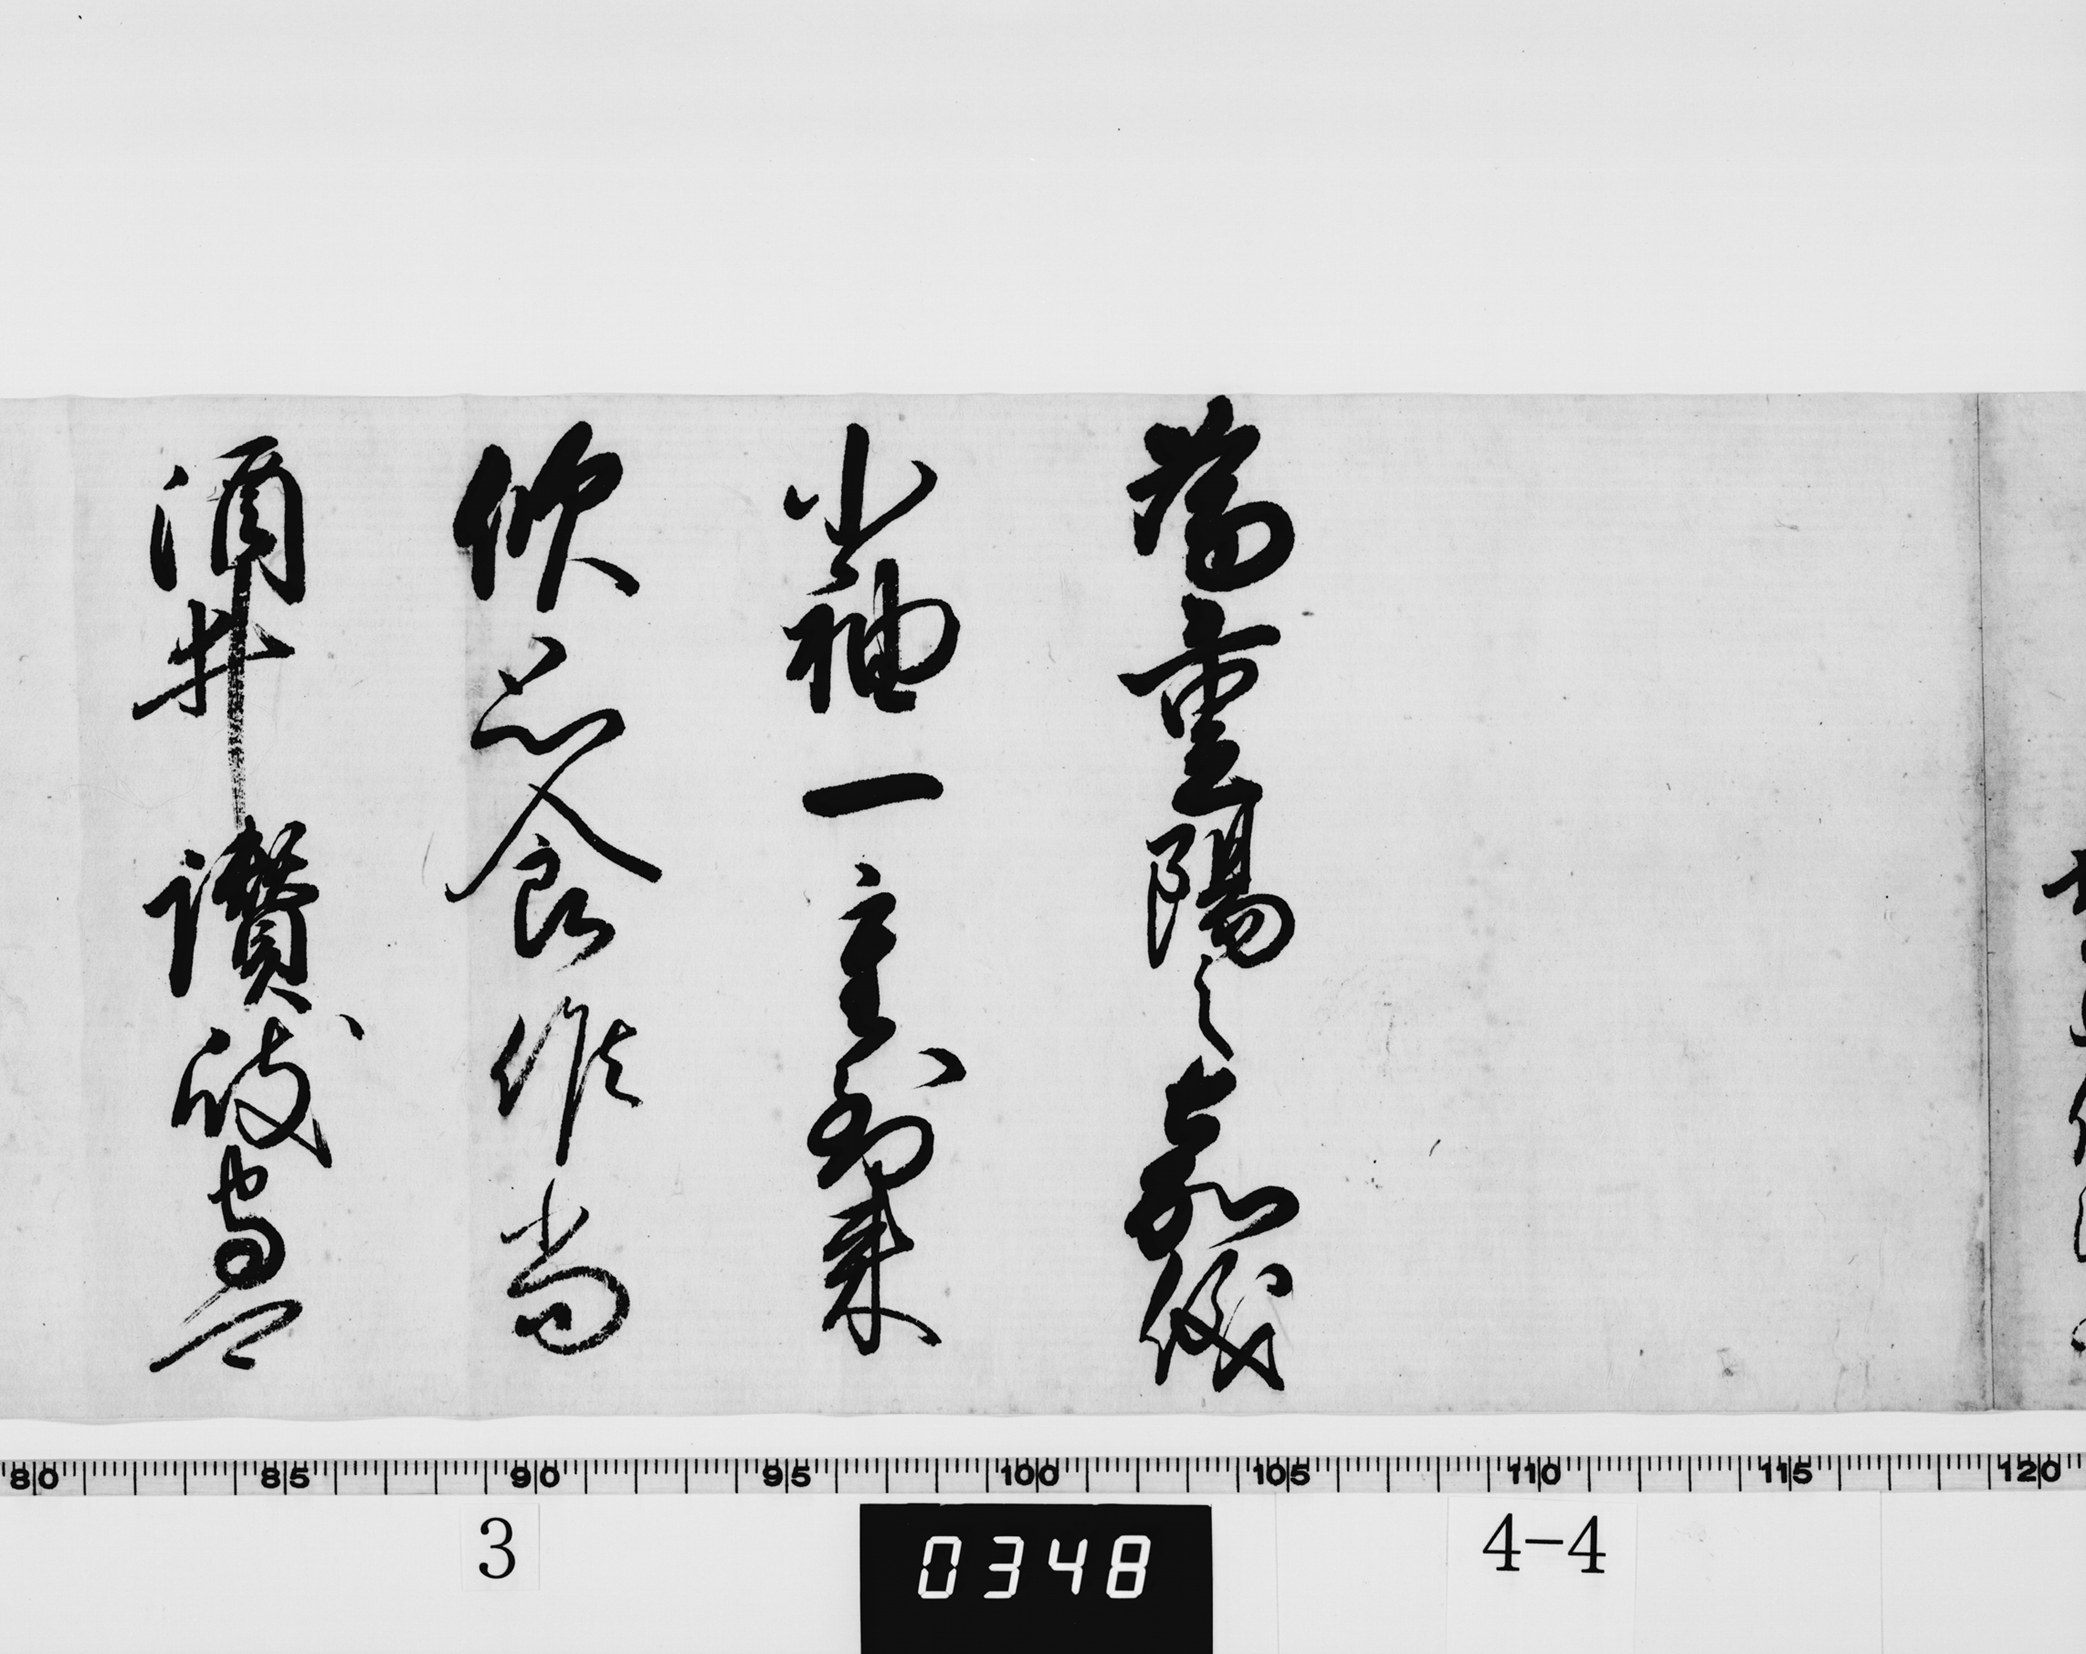 為重陽之嘉儀
小袖一重到来
欣思食候尚
酒井讃岐守
80 85 90 95 100 105 110 115 120
3 0348 4-4